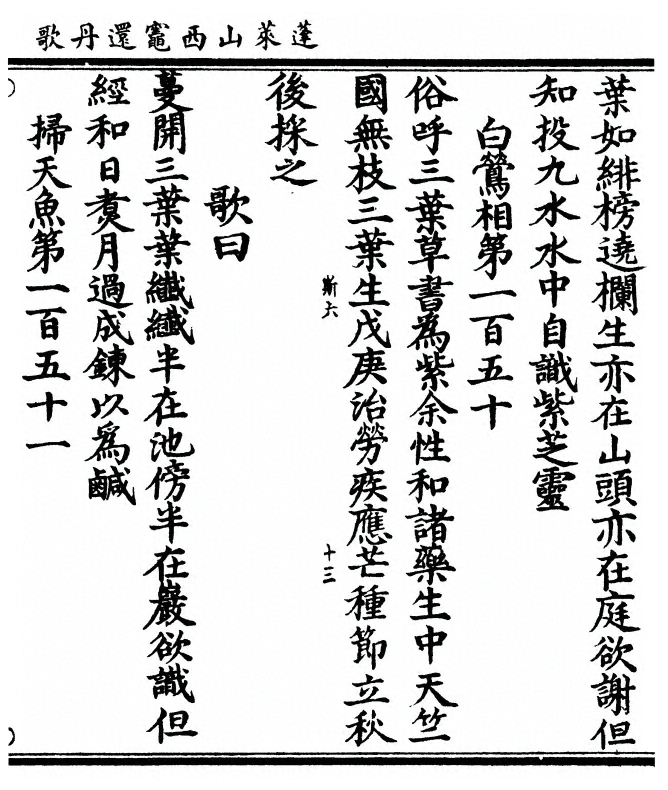 蓬萊山西竈還丹歌
葉如緋榜遶欄生亦在山頭亦在庭欲謝但
知投九水水中自識紫芝靈
白鶯相第一百五十
俗呼三葉草書為紫余性和諸藥生中天竺
國無枝三葉生戊庚治勞疾應芒種節立秋
斯六
十三
後採之
歌曰
蔓開三葉葉纖纖半在池傍半在巖欲識但
經和日煑月過成鍊以為鹹
掃天魚第一百五十一